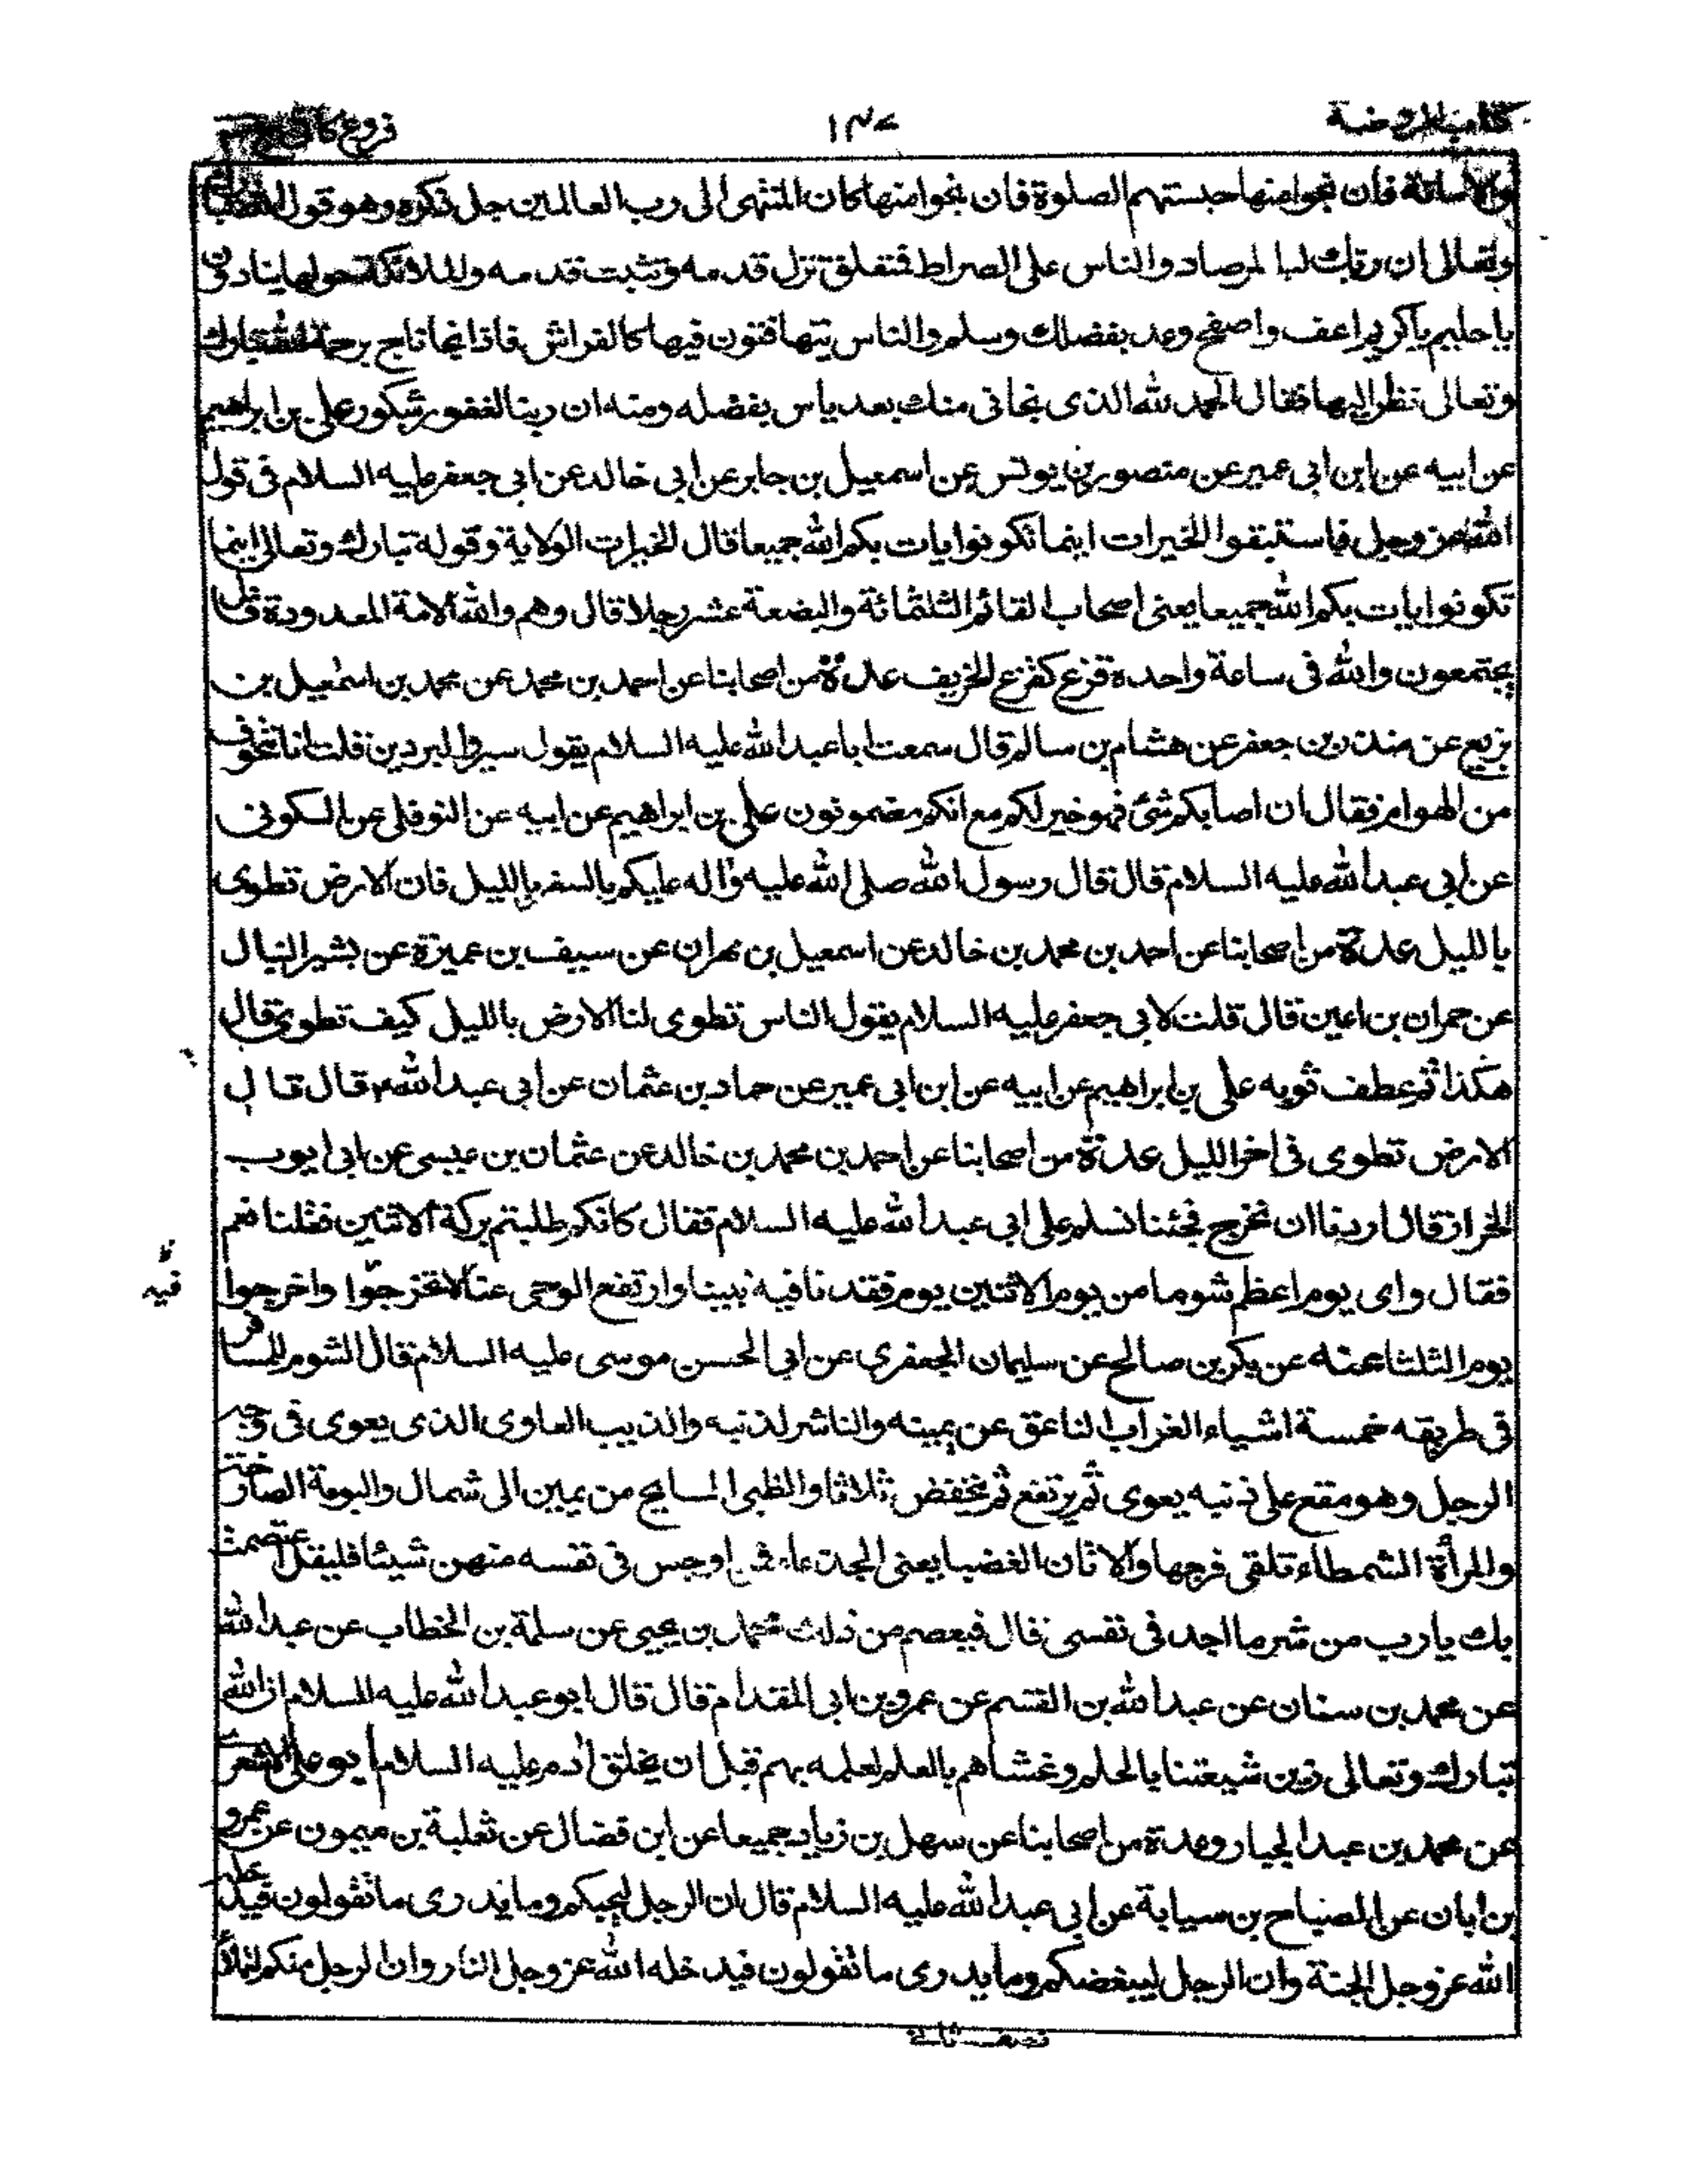 كتاب الروضة ١٤٧ فروع كافى
والامانة فان نجوا منها حبستهم الصلوة فان نجوا منها كان المنتهى الى رب العالمين جل ذكره وهو قول الله تبارك
وتعالى ان ربك لبالمرصاد والناس على الصراط فمتعلق تزل قدمه وتثبت قدمه والملائكة حولها ينادون
يا حليم يا كريم اعف واصفح وعد بفضلك وسلم والناس يتهافتون فيها كالفراش فاذا نجا ناج برحمة الله تبارك
وتعالى نظر اليها فقال الحمد لله الذى نجانى منك بعد ياس بفضله ومنه ان ربنا لغفور شكور على بن ابراهيم
عن ابيه عن ابن ابى عمير عن منصور بن يونس عن اسمعيل بن جابر عن ابى خالد عن ابى جعفر عليه السلام فى قول
الله عز وجل فاستبقوا الخيرات اينما تكونوا يات بكم الله جميعا قال الخيرات الولاية وقوله تبارك وتعالى اينما
تكونوا يات بكم الله جميعا يعنى اصحاب القائم الثلثمائة والبضعة عشر رجلا قال وهم والله الامة المعدودة قال
يجتمعون والله فى ساعة واحدة قزع كقزع الخريف عدة من اصحابنا عن احمد بن محمد عن محمد بن اسمعيل بن
بزيع عن منذر بن جعفر عن هشام بن سالم قال سمعت ابا عبد الله عليه السلام يقول سيروا البردين قلت انا نتخوف
من الهوام فقال ان اصابكم شئ فهو خير لكم مع انكم مضمونون على بن ابراهيم عن ابيه عن النوفلى عن السكونى
عن ابى عبد الله عليه السلام قال قال رسول الله صلى الله عليه واله عليكم بالسفر بالليل فان الارض تطوى
بالليل عدة من اصحابنا عن احمد بن محمد بن خالد عن اسمعيل بن مهران عن سيف بن عميرة عن بشير النبال
عن حمران بن اعين قال قلت لابى جعفر عليه السلام يقول الناس تطوى لنا الارض بالليل كيف تطوى قال
هكذا ثم عطف ثوبه على بن ابراهيم عن ابيه عن ابن ابى عمير عن حماد بن عثمان عن ابى عبد الله ع قال قال
الارض تطوى فى اخر الليل عدة من اصحابنا عن احمد بن محمد بن خالد عن عثمان بن عيسى عن ابى ايوب
الخراز قال اردنا ان نخرج فجئنا نسلم على ابى عبد الله عليه السلام فقال كانكم طلبتم بركة الاثنين فقلنا نعم
فقال واى يوم اعظم شوما من يوم الاثنين يوم فقدنا فيه نبينا وارتفع الوحى عنا لا تخرجوا واخرجوا
فيه
يوم الثلثا عنه عن بكر بن صالح عن سليمان الجعفرى عن ابى الحسن موسى عليه السلام قال الشوم للمسافر
فى طريقه خمسة اشياء الغراب الناعق عن يمينه والناشر لذنبه والذيب العاوى الذى يعوى فى وجه
الرجل وهو مقع على ذنبه يعوى ثم يرتفع ثم ينخفض ثلاثا والظبى السايح من يمين الى شمال والبومة الصارخة
والمرأة الشمطاء تلقى فرجها والاتان الغضبا يعنى الجدعاء فمن اوجس فى نفسه منهن شيئا فليقل اعتصمت
بك يا رب من شر ما اجد فى نفسى فال فيعصم من ذلك محمد بن يحيى عن سلمة بن الخطاب عن عبد الله
عن محمد بن سنان عن عبد الله بن القسم عن عمرو بن ابى المقدام قال قال ابو عبد الله عليه السلام ان الله
تبارك وتعالى زين شيعتنا بالحلم وغشاهم بالعلم لعلمه بهم قبل ان يخلق ادم عليه السلام ابو على الاشعرى
عن محمد بن عبد الجبار وعدة من اصحابنا عن سهل بن زياد جميعا عن ابن فضال عن ثعلبة بن ميمون عن عمرو
بن ابان عن الصباح بن سيابة عن ابى عبد الله عليه السلام قال ان الرجل ليحبكم وما يدرى ما تقولون فيدخله
الله عز وجل الجنة وان الرجل ليبغضكم وما يدرى ما تقولون فيدخله الله عز وجل النار وان الرجل منكم لتملأ
نصف ثانى